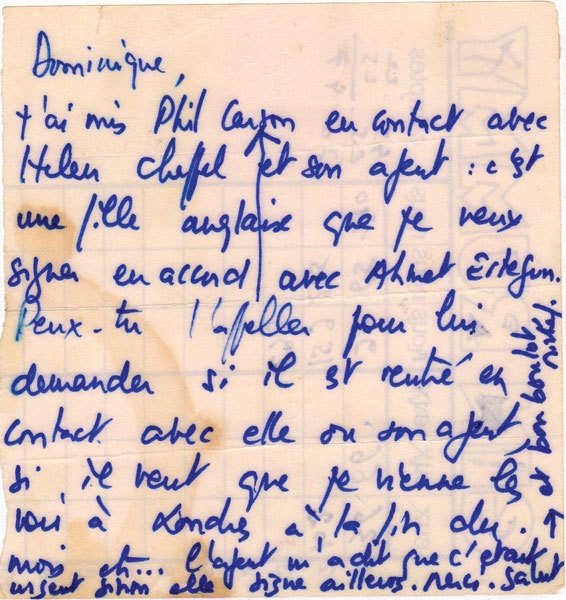 Dominique,
j'ai mis Phil Carson en contact avec
Helen Cheppel et son agent : c'est
une fille anglaise que je veux
signer en accord avec Ahmet Ertegun.
Peux-tu l'appeller pour lui
demander si il est rentré en
contact avec elle ou son agent
si il veut que je vienne les
voir à Londres à la fin du
mois etc... L'agent m'a dit que c'était
urgent sinon elle signe ailleurs. Merci. Salut
→ et bon boulot